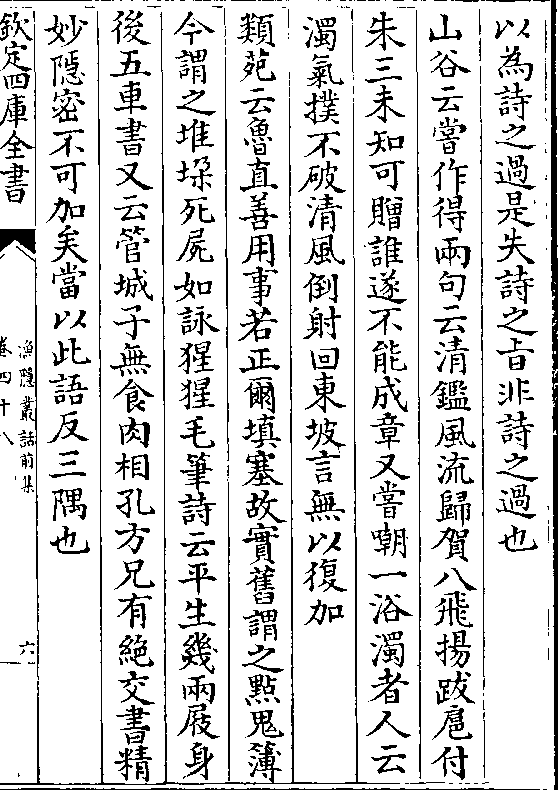 以為詩之過是失詩之㫖非詩之過也
山谷云嘗作得兩句云清鑑風流歸賀八飛揚跋扈付
朱三未知可贈誰遂不能成章又嘗嘲一浴濁者人云
濁氣撲不破清風倒射回東坡言無以復加
類苑云魯直善用事若正爾填塞故實舊謂之㸃鬼簿
今謂之堆垜死屍如詠猩猩毛筆詩云平生幾兩屐身
後五車書又云管城子無食肉相孔方兄有絶交書精
妙隱密不可加矣當以此語反三隅也
欽定四庫全書
漁隱叢話前集
卷四十八
六